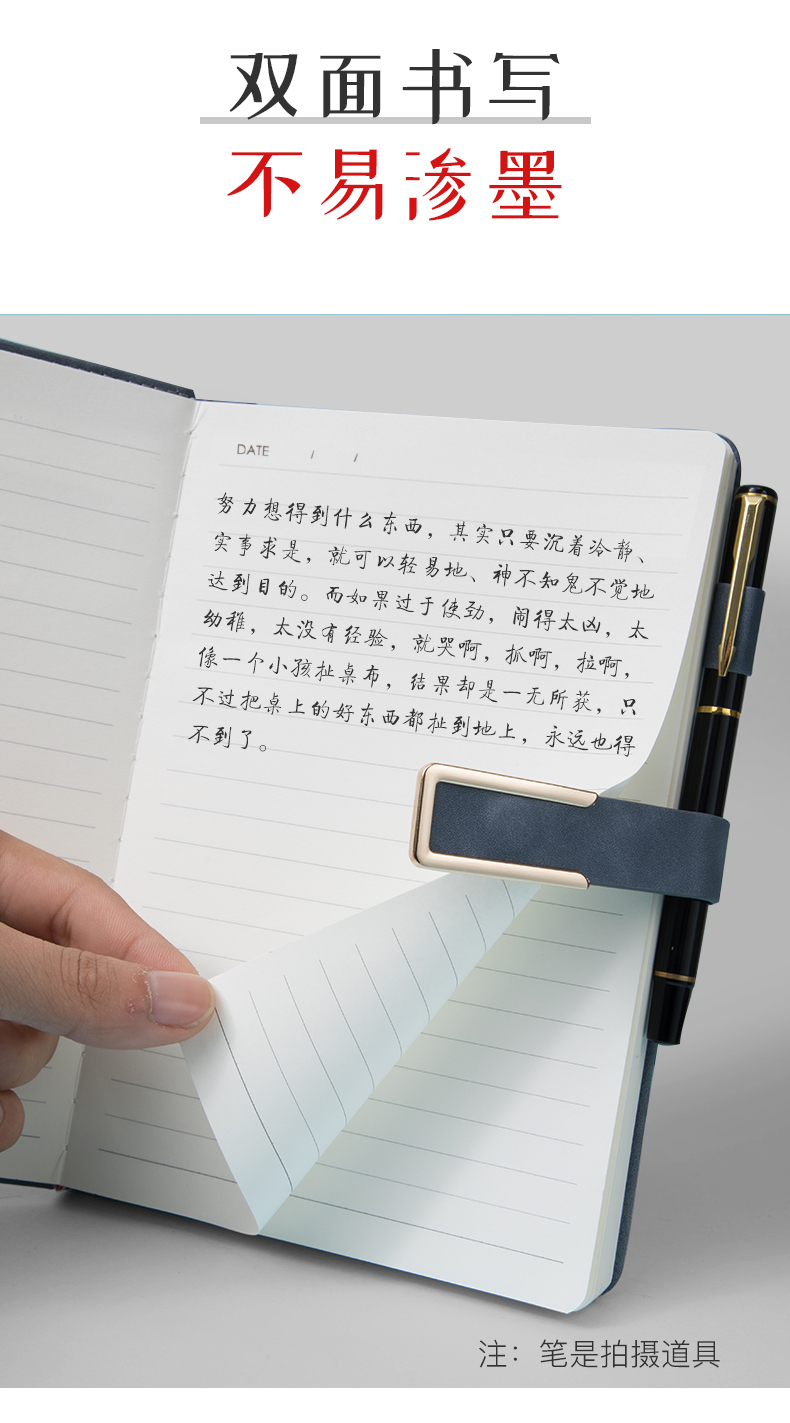 双面书写
不易渗墨
DATE / /
努力想得到什么东西，其实只要沉着冷静、
实事求是，就可以轻易地、神不知鬼不觉地
达到目的。而如果过于使劲，闹得太凶，太
幼稚，太没有经验，就哭啊，抓啊，拉啊，
像一个小孩扯桌布，结果却是一无所获，只
不过把桌上的好东西都扯到地上，永远也得
不到了。
注：笔是拍摄道具